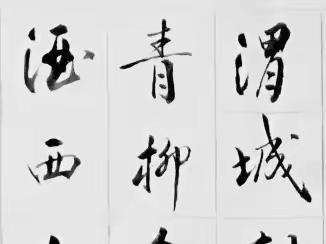 渭城
青柳
酒西